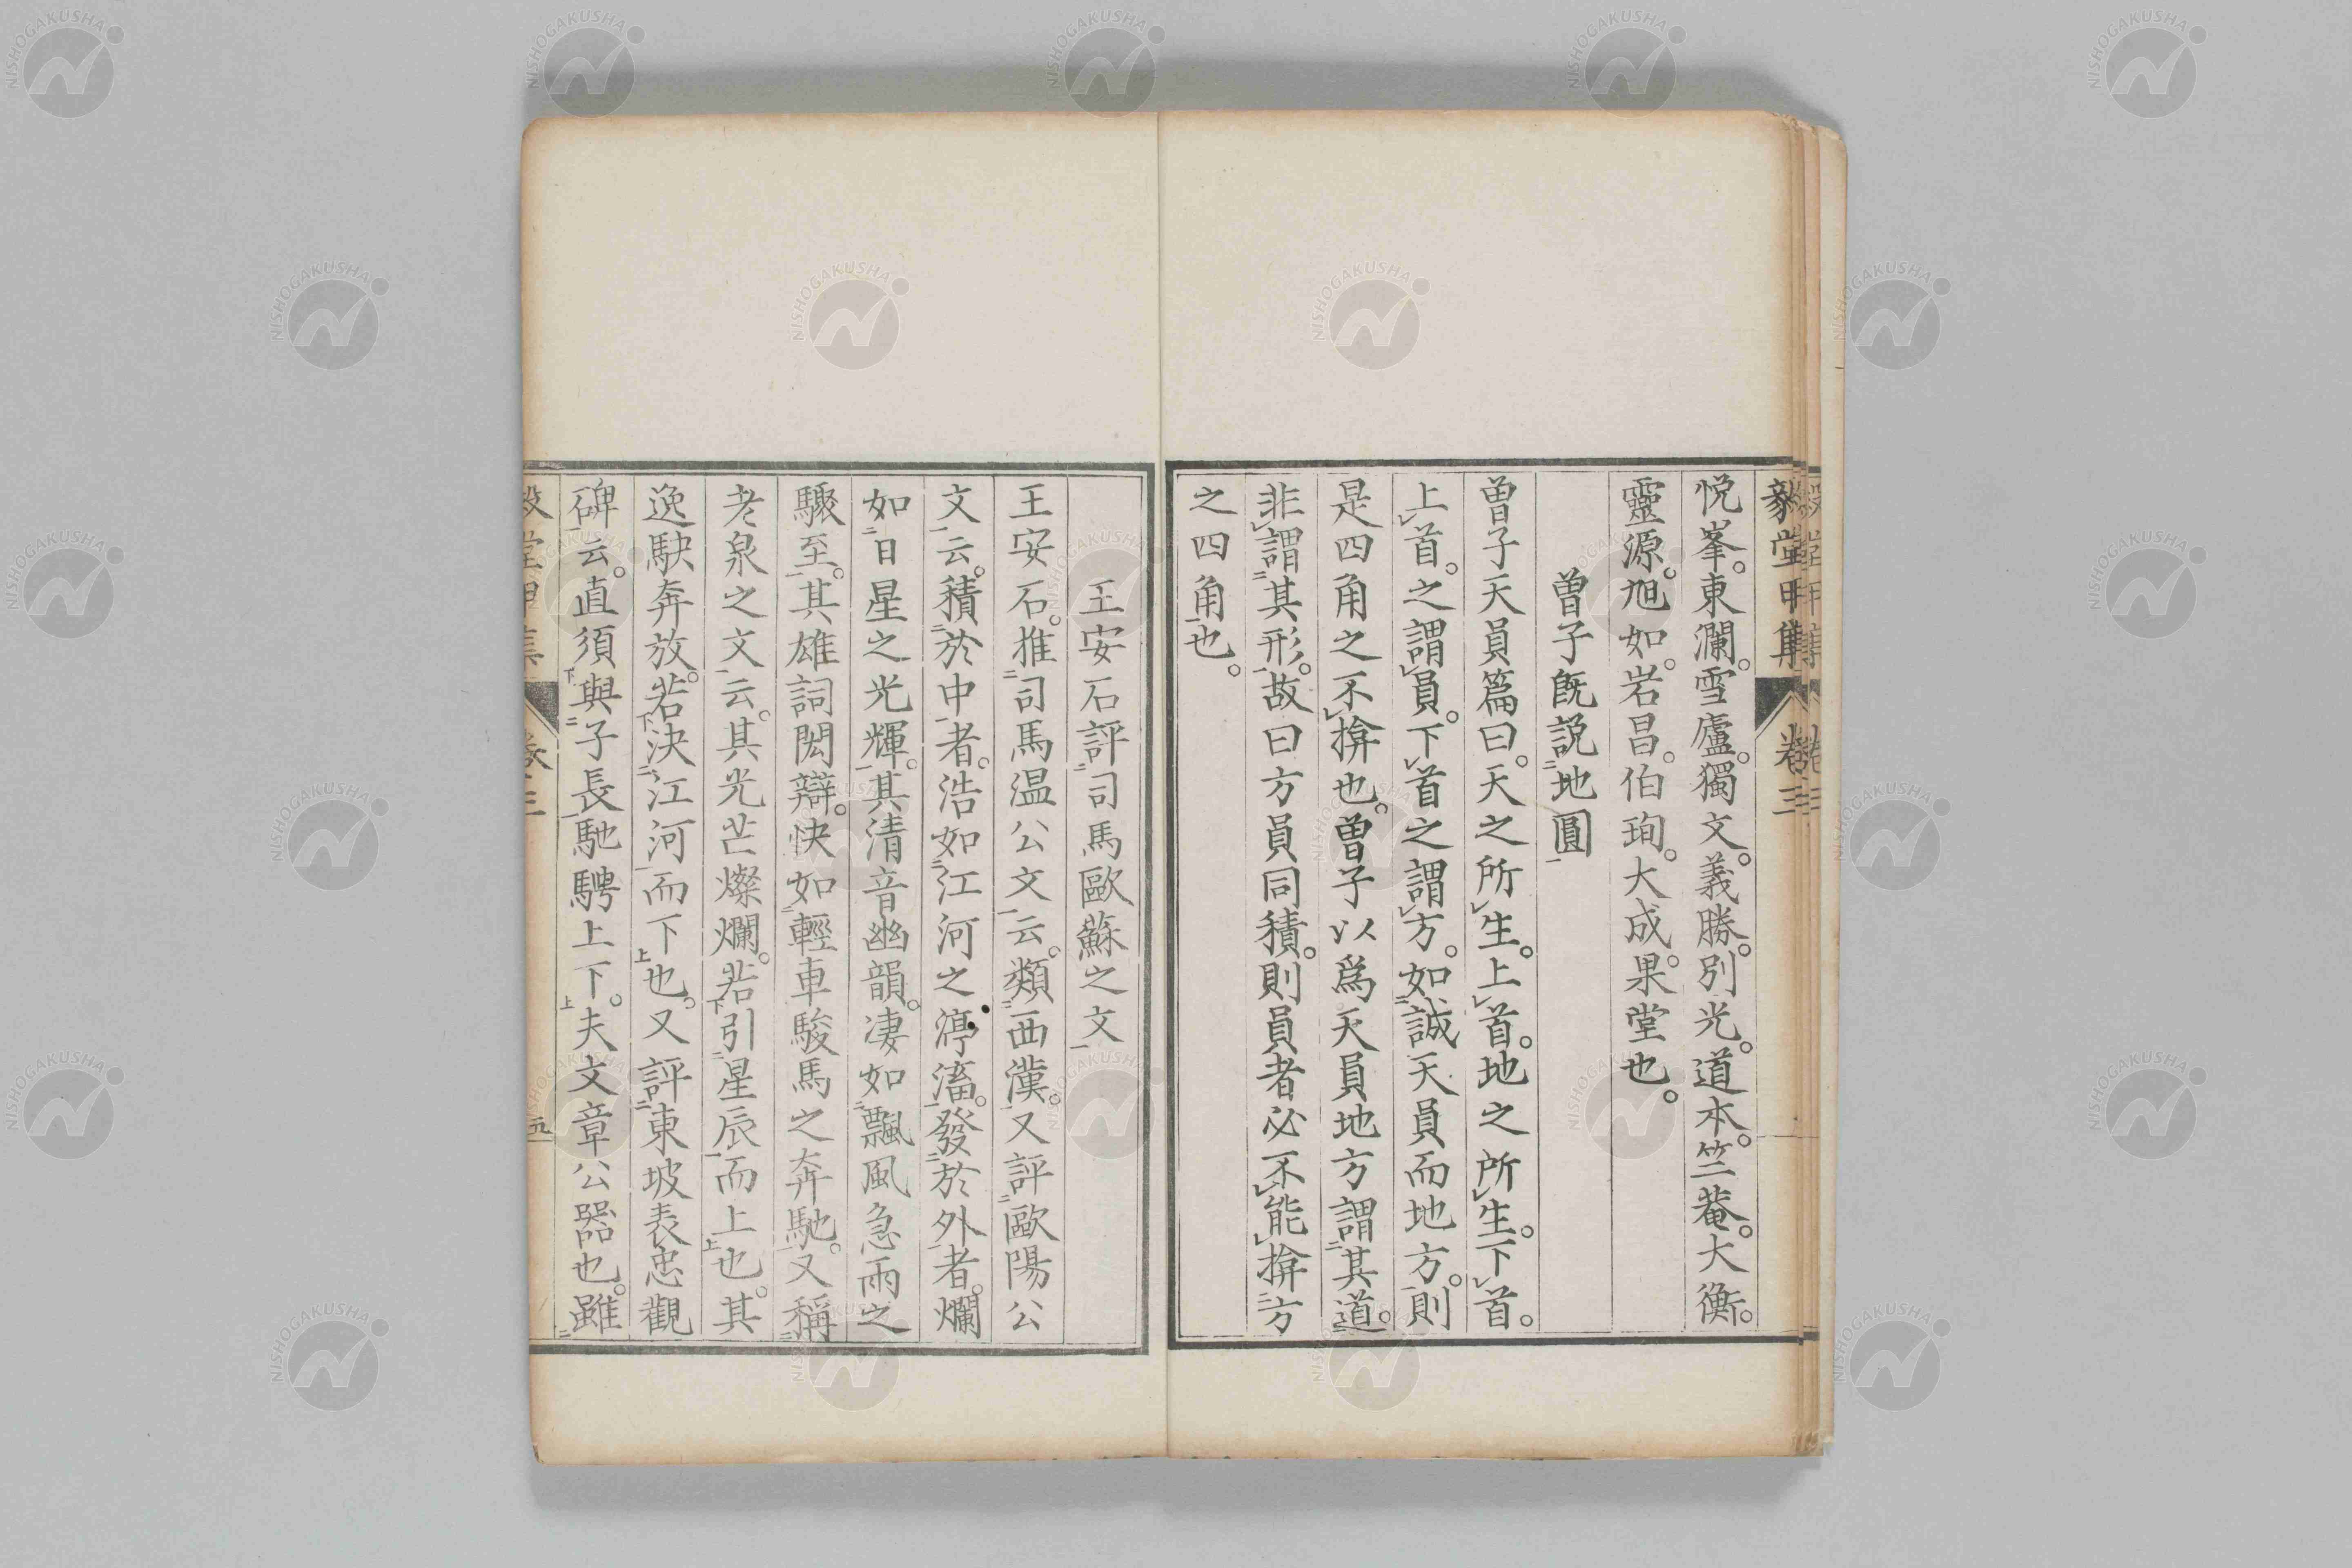 毅堂甲集 卷三
悦峯。東瀾。雪廬。獨文。義勝。別光。道本。竺菴。大衡。
靈源。旭如。岩昌。伯珣。大成。果堂也。
曽子既説地圓
曽子天員篇曰。天之所生。上首。地之所生。下首。
上首。之謂員。下首之謂方。如誠天員而地方。則
是四角之不揜也。曽子以爲天員地方謂其道。
非謂其形。故曰方員同積。則員者必不能揜方
之四角也。
王安石評司馬歐蘇之文
王安石。推司馬温公文云。類西漢。又評歐陽公
文云。積於中者。浩如江河之渟滀。發於外者。爛
如日星之光輝。其清音幽韻。凄如飄風急雨之
驟至。其雄詞閎辯。快如輕車駿馬之奔馳。又稱
老泉之文云。其光芒燦爛。若引星辰而上也。其
逸駃奔放。若決江河而下也。又評東坡表忠觀
碑云。直須與子長馳騁上下。夫文章公器也。雖
NISHOGAKUSHA